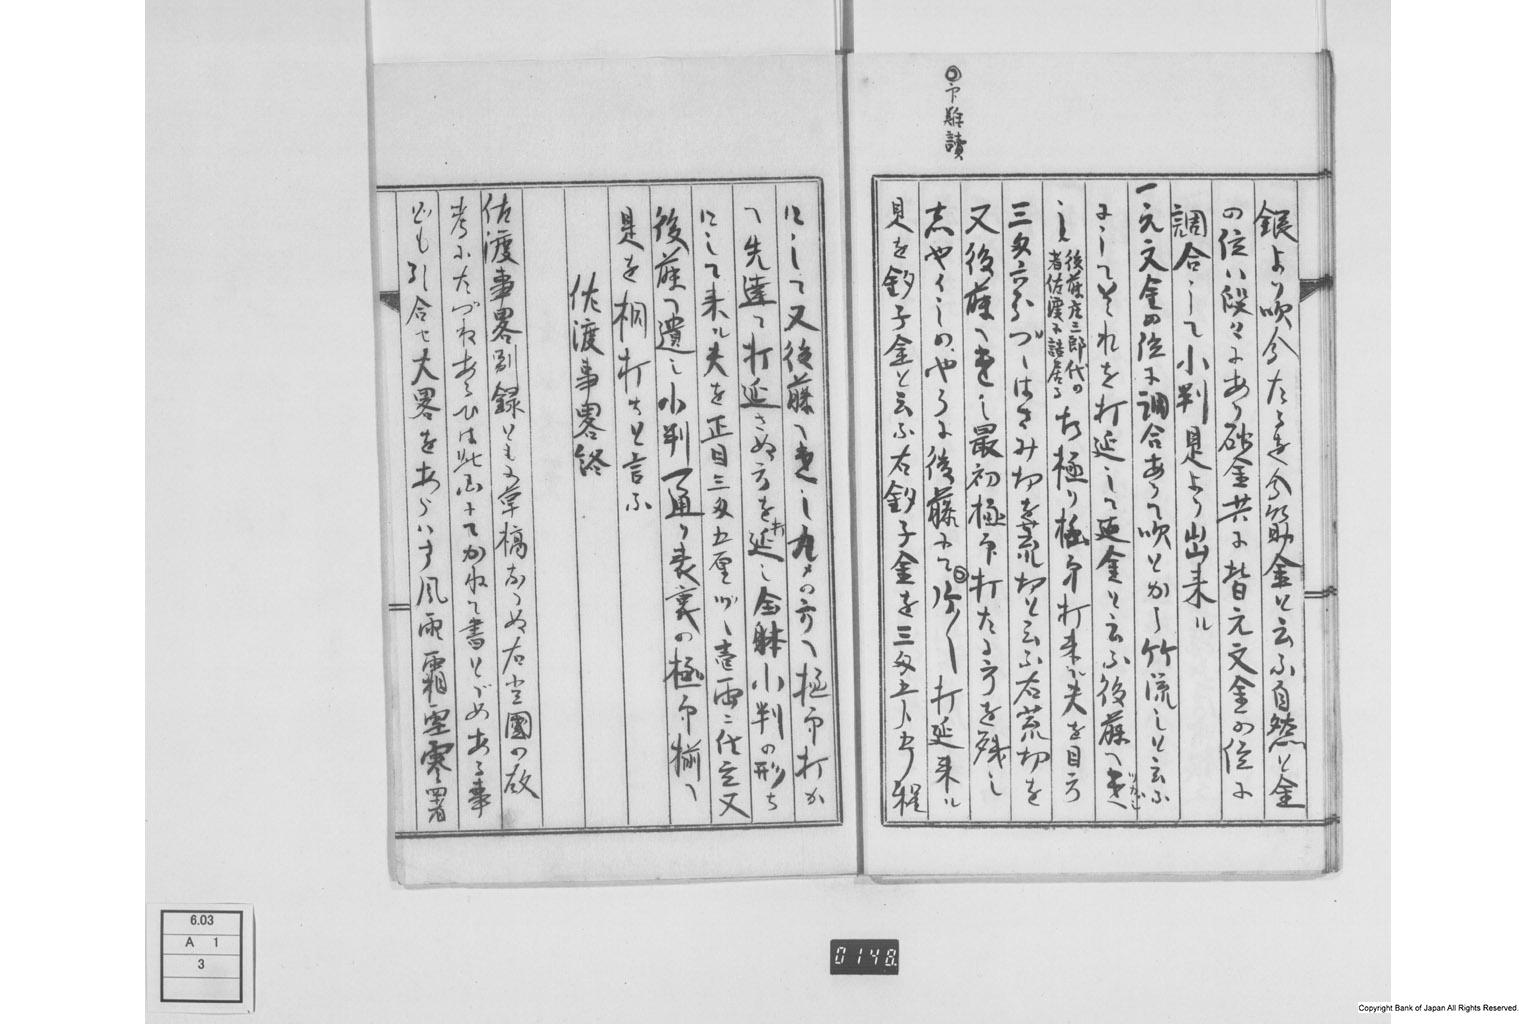 ◎印難讀
銀より吹分たるを分筋金と云ふ自然と金
の位ハ段々にあり砂金共に皆元文金の位に
調合して小判是より出来ル
一元文金の位に調合あつて吹とかし竹流しと云ふ
にしてそれを打延して延金と云ふ後藤へ遣
し 後藤庄三郎代の者佐渡ニ詰居る 右極り極印打来ル夫を目方
三匁六分づゝはさみ切を荒切と云ふ右荒切を
又後藤へ遣し最初極印打たる方を残し
志やくしのやうに後藤にて 打延来ル
是を釣子金と云ふ右釣子金を三匁五分程
にして又後藤へ遣し 方へ極印打か
へ先達て打延さぬ方を打延し全躰小判の形ち
にして来ル夫を正目三匁五厘づゝ壱両ニ仕立又
後藤へ遣し小判一通り表裏の極印揃へ
是を桐打ちと言ふ
佐渡事畧終
佐渡事畧別録とも草稿なりぬ右当國の故
考にたづねあらひは此にてかねて書とゞめある事
ども引合セ大畧をあらハす風雨霜雪寒暑
6.03
A 1
3
0148
Copyright Bank of Japan All Rights Reserved.